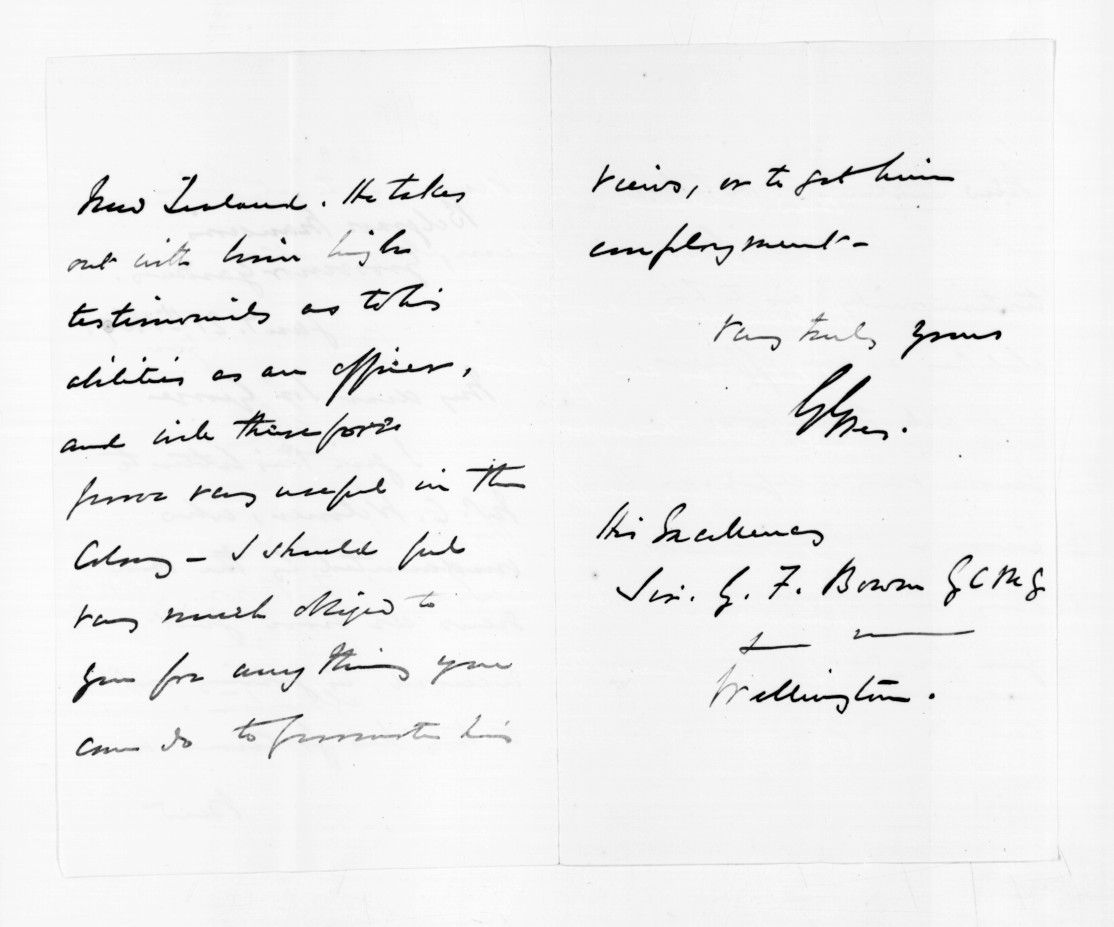 New Zealand. He takes
out with him high
testimonials as to his
abilities as an officer,
and will therefore
prove very useful in the
Colony – I should feel
very much obliged to
you for any thing you
can do to promote his
views, or to get him
employment –
Very truly yours
G Grey.
His Excellency
Sir. G. F. Bowen G C M G
Wellington.